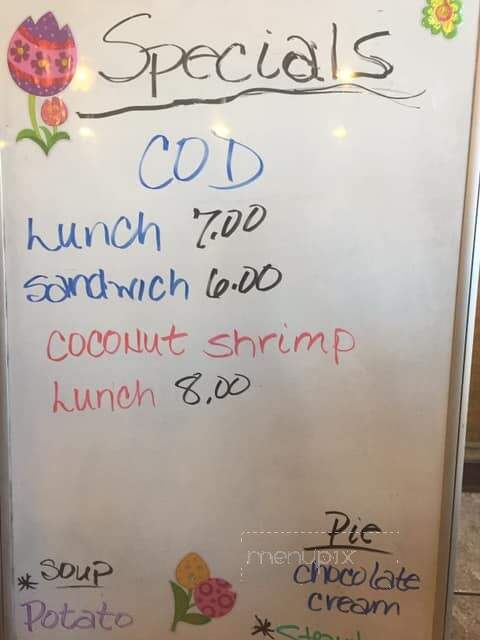 Specials
COD
Lunch 7.00
Sandwich 6.00
Coconut Shrimp
Lunch 8.00
Pie
menupix
* Soup
chocolate
cream
Potato